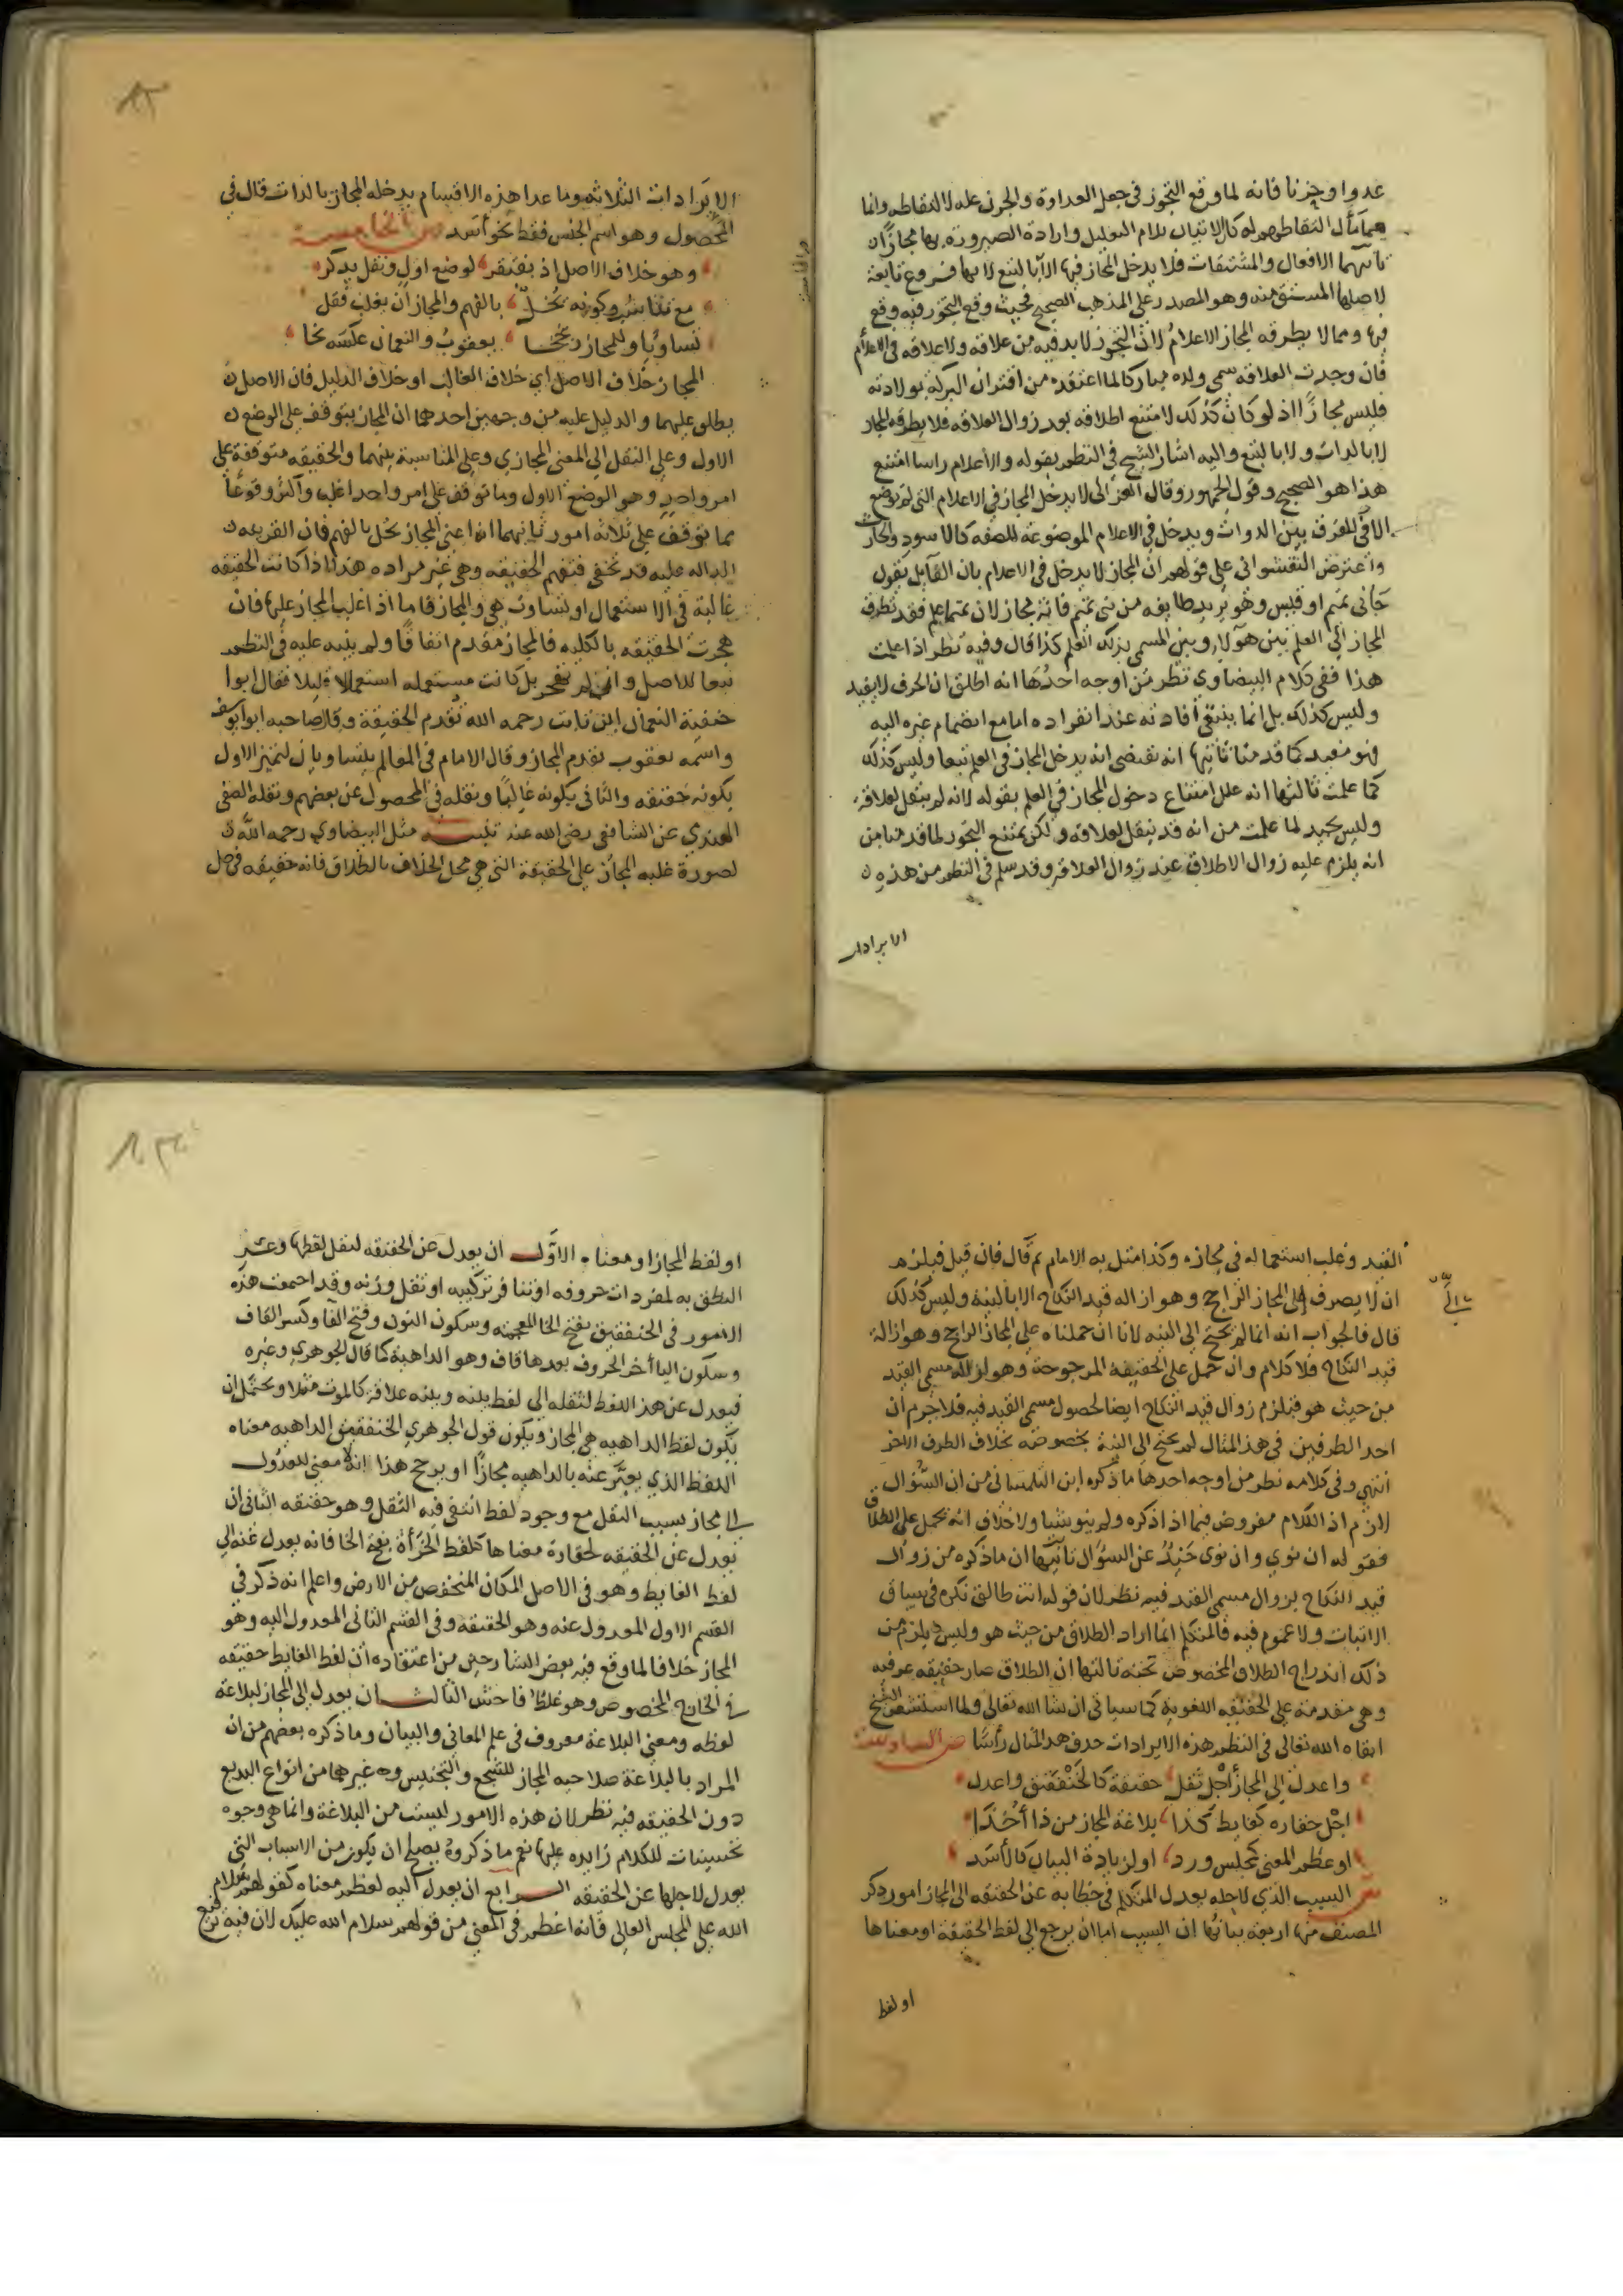 عدوا وحزنا فانه لما وقع التجوز فى جعل العداوة والحزن عله لالتقاطه وانما
هما مآل التقاطهم له كان الاتيان بلام التعليل وارادة الصيرورة بها مجازا ن
ثانيهما الافعال والمشتقات فلا يدخل المجاز فيها الا بالتبع لانها فروع تابعة
لاصلها المشتق منه وهو المصدر على المذهب الصحيح فحيث وقع التجوز فيه وقع
فيها ومما لا يطرقه المجاز الاعلام لان التجوز لا بد فيه من علاقه ولا علاقه فى الاعلام
فان وجدت العلاقه كمن سمى ولده مباركا لما اعتقده من اقتران البركة بولادته
فليس مجازا اذ لو كان كذلك لامتنع اطلاقه بعد زوال العلاقه فلا يطرقه المجاز
لا بالذات ولا بالتبع واليه اشار الشيخ فى النظم بقوله والاعلام راسا امتنع
هذا هو الصحيح وقول الجمهور وقال الغزالى لا يدخل المجاز فى الاعلام التى لم توضع
الا للفرق بين الذوات ويدخل فى الاعلام الموضوعة للصفه كالاسود والحارث
واعترض النقشوانى على قولهم ان المجاز لا يدخل فى الاعلام بان القايل يقول
جانى تميم او قيس وهو يريد طايفه من بنى تميم فانه مجاز لان تميما علم فقد تطرق
المجاز الى العلم بين هولا وبين المسمى بذلك العلم كذا قال وفيه نظر اذا علمت
هذا ففى كلام البيضاوى نظر من اوجه احدها انه اطلق ان الحرف لا يفيد
وليس كذلك بل انما ينتفى افادته عند انفراده اما مع انضمام غيره اليه
فهو مفيد كما قدمنا ثانيها انه يقتضى انه يدخل المجاز فى العلم تبعا وليس كذلك
كما علمت ثالثها انه علل امتناع دخول المجاز فى العلم بقوله لانه لم ينقل لعلاقة
وليس بجيد لما علمت من انه قد ينقل لعلاقه ولكن يمتنع التجوز لما قدمنا من
انه يلزم عليه زوال الاطلاق عند زوال العلاقه وقد سلم فى النظم من هذه ن
الايرادات
الايرادات الثلاثه وما عدا هذه الاقسام يدخله المجاز بالذات قال فى
المحصول وهو اسم الجنس فقط نحو اسد ص الخامسة
وهو خلاف الاصل اذ يفتقر لوضع اول ونقل يذكر
مع تناسب وكونه يخل بالفهم والمجاز ان يغلب فقل
تساويا وللمجاز رجحا يعقوب والنعمان عكسه نحا
المجاز خلاف الاصل اى خلاف الغالب او خلاف الدليل فان الاصل ن
يطلق عليهما والدليل عليه من وجهين احدهما ان المجاز يتوقف على الوضع ن
الاول وعلى النقل الى المعنى المجازى وعلى المناسبة بينهما والحقيقه متوقفة على
امر واحد وهو الوضع الاول وما توقف على امر واحد اغلب واكثر وقوعا
مما توقف على ثلاثة امور ثانيهما انه اعنى المجاز يخل بالفهم فان القرينه ن
الداله عليه قد تخفى فتفهم الحقيقه وهى غير مراده هذا اذا كانت الحقيقه
غالبة فى الاستعمال او تساوت هى والمجاز فاما اذا غلب المجاز عليها فان
هجرت الحقيقه بالكليه فالمجاز مقدم اتفاقا ولم ينبه عليه فى النظم
تبعا للاصل وان لم تهجر بل كانت مستعمله استعمالا قليلا فقال ابوا
حنفية النعمان ابن ثابت رحمه الله تقدم الحقيقة وقال صاحبه ابو يوسف
واسمه يعقوب يقدم المجاز وقال الامام فى المعالم يتساويان لتميز الاول
بكونه حقيقه والثانى بكونه غالبا ونقله فى المحصول عن بعضهم ونقله الصفى
الهندى عن الشافعى رضى الله عنه تنبيه مثل البيضاوى رحمه الله ن
لصورة غلبه المجاز على الحقيقة التى هى محل الخلاف بالطلاق فانه حقيقه فى حل
القيد وغلب استعماله فى مجازه وكذا مثل به الامام ثم قال فان قيل فيلزم
ان لا يصرف الى المجاز الراجح وهو ازاله قيد النكاح الا بالنية وليس كذلك
قال فالجواب انه انما لم يحتج الى النيه لانا ان حملناه على المجاز الراجح وهو ازالة
قيد النكاح فلا كلام وان حمل على الحقيقة المرجوحة وهو ازالة مسمى القيد
من حيث هو فيلزم زوال قيد النكاح ايضا لحصول مسمى القيد فيه فلا جرم ان
احد الطرفين فى هذا المثال لم يحتج الى النية بخصوصه بخلاف الطرف الاخر
انتهى وفى كلامه نظر من اوجه احدها ما ذكره ابن التلمسانى من ان السؤال
لازم اذ الكلام مفروض فيما اذا ذكره ولم ينو شيا ولا خلاف انه يحمل على الطلاق
فقوله ان نوى وان نوى حيد عن السؤال ثانيها ان ما ذكره من زوال
قيد النكاح بزوال مسمى القيد فيه نظر لان قوله انت طالق نكره فى سياق
الاثبات ولا عموم فيه فالمتكلم انما اراد الطلاق من حيث هو وليس يلزم من
ذلك اندراج الطلاق المخصوص تحته ثالثها ان الطلاق صار حقيقه عرفيه
وهى مقدمة على الحقيقه اللغوية كما سياتى ان شا الله تعالى ولما استشعر الشيخ
ابقاه الله تعالى فى النظم هذه الايرادات حذف هذا المثال راسا ص السادسة
واعدل الى المجاز اجل ثقل حقيقة كالخنفقيق واعدل
اجل حقاره كغايط كذا بلاغة المجاز من ذا اخذا
او عظم المعنى كمجلس ورد او لزيادة البيان كالاسد
ش السبب الذى لاجله يعدل المتكلم فى خطابه عن الحقيقه الى المجاز امور ذكر
المصنف منها اربعة بيانها ان السبب اما ان يرجع الى لفظ الحقيقة او معناها
او لفظ
او لفظ المجاز او معناه الاول ان يعدل عن الحقيقه لثقل لفظها وعسر
النطق به لمفردات حروفه او تنافر تركيبه او ثقل وزنه وقد اجتمعت هذه
الامور فى الخنفقيق بفتح الخا المعجمه وسكون النون وفتح الفا وكسر القاف
وسكون اليا اخر الحروف بعدها قاف وهو الداهية كما قال الجوهرى وغيره
فيعدل عن هذا اللفظ لثقله الى لفظ بينه وبينه علاقه كالموت مثلا ويحتمل ان
يكون لفظ الداهيه هى المجاز ويكون قول الجوهرى الخنفقيق الداهيه معناه
اللفظ الذى يعبر عنه بالداهيه مجازا او يرجح هذا انه لا معنى للعدول
الى مجاز بسبب الثقل مع وجود لفظ انتفى فيه الثقل وهو حقيقه الثانى ان
يعدل عن الحقيقه لحقارة معناها كلفظ الخرأة بفتح الخا فانه يعدل عنه الى
لفظ الغايط وهو فى الاصل المكان المنخفض من الارض واعلم انه ذكر فى
القسم الاول المعدول عنه وهو الحقيقه وفى القسم الثانى المعدول اليه وهو
المجاز خلافا لما وقع فيه بعض الشارحين من اعتقاده ان لفظ الغايط حقيقه
فى الخارج المخصوص وهو غلط فاحش الثالث ان يعدل الى المجاز لبلاغة
لفظه ومعنى البلاغة معروف فى علم المعانى والبيان وما ذكره بعضهم من ان
المراد بالبلاغة صلاحيه المجاز للسجع والتجنيس وغيرهما من انواع البديع
دون الحقيقه فيه نظر لان هذه الامور ليست من البلاغة وانما هى وجوه
تحسينات للكلام زايده عليها نعم ما ذكروه يصلح ان يكون من الاسباب التى
يعدل لاجلها عن الحقيقه الرابع ان يعدل اليه لعظم معناه كقولهم سلام
الله على المجلس العالى فانه اعظم فى المعنى من قولهم سلام الله عليك لان فيه